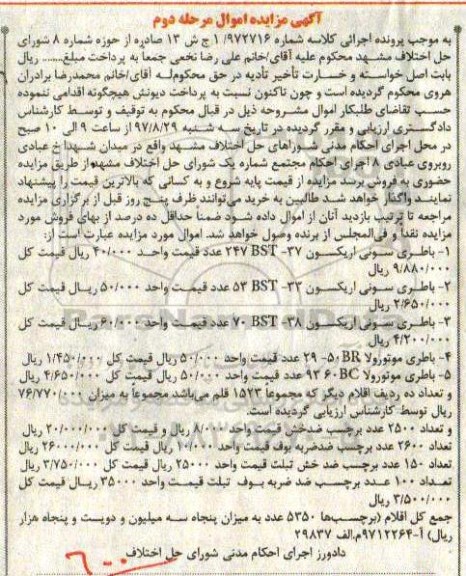 آگهی مزایده اموال مرحله دوم
به موجب پرونده اجرائی کلاسه شماره ۱/۹۷۲۷۱۶ ج ش ۱۳ صادره از حوزه شماره ۸ شورای
حل اختلاف مشهد محکوم علیه آقای/خانم علی رضا نخعی جمعاً به پرداخت مبلغ........ ریال
بابت اصل خواسته و خسارت تأخیر تأدیه در حق محکوم‌لـه آقای/خانم محمدرضا برادران
هروی محکوم گردیده است و چون تاکنون نسبت به پرداخت دیونش هیچگونه اقدامی ننموده
حسب تقاضای طلبکار اموال مشروحه ذیل در قبال محکوم به توقیف و توسط کارشناس
دادگستری ارزیابی و مقرر گردیده در تاریخ سه شنبه ۹۷/۸/۲۹ از ساعت ۹ الی ۱۰ صبح
در محل اجرای احکام مدنی شوراهای حل اختلاف مشهد واقع در میدان شهدا خ عبادی
روبروی عبادی ۸ اجرای احکام مجتمع شماره یک شورای حل اختلاف مشهد از طریق مزایده
حضوری به فروش برسد مزایده از قیمت پایه شروع و به کسانی که بالاترین قیمت را پیشنهاد
نمایند واگذار خواهد شد طالبین به خرید می‌توانند ظرف پنج روز قبل از برگزاری مزایده
مراجعه تا ترتیب بازدید آنان از اموال داده شود ضمناً حداقل ده درصد از بهای فروش مورد
مزایده نقداً و فی‌المجلس از برنده وصول خواهد شد. اموال مورد مزایده عبارت است از:
۱- باطری سونی اریکسون ۳۷- BST ۲۴۷ عدد قیمت واحد ۴۰/۰۰۰ ریال قیمت کل
۹/۸۸۰/۰۰۰ ریال
۲- باطری سونی اریکسون ۳۳- BST ۵۳ عدد قیمت واحد ۵۰/۰۰۰ ریال قیمت کل
۲/۶۵۰/۰۰۰ ریال
۳- باطری سونی اریکسون ۳۸- BST ۷۰ عدد قیمت واحد ۶۰/۰۰۰ ریال قیمت کل
۴/۲۰۰/۰۰۰ ریال
۴- باطری موتورولا BR۵۰- ۲۹ عدد قیمت واحد ۵۰/۰۰۰ ریال قیمت کل ۱/۴۵۰/۰۰۰ ریال
۵- باطری موتورولا BC۶۰ ۹۳ عدد قیمت واحد ۵۰/۰۰۰ ریال قیمت کل ۴/۶۵۰/۰۰۰ ریال
و تعداد ده ردیف اقلام دیگر که مجموعا ۱۵۲۳ قلم می‌باشد مجموعاً به میزان ۷۶/۷۷۰/۰۰۰
ریال توسط کارشناس ارزیابی گردیده است.
و تعداد ۲۵۰۰ عدد برچسب ضدخش قیمت واحد ۸/۰۰۰ ریال و قیمت کل ۲۰/۰۰۰/۰۰۰ ریال
تعداد ۲۶۰۰ عدد برچسب ضدضربه بوف قیمت واحد ۱۰/۰۰۰ ریال قیمت کل ۲۶۰۰۰/۰۰۰ ریال
تعداد ۱۵۰ عدد برچسب ضد خش تبلت قیمت واحد ۲۵۰۰۰ ریال قیمت کل ۳/۷۵۰/۰۰۰ ریال
تعداد ۱۰۰ عدد برچسب ضد ضربه بوف تبلت قیمت واحد ۳۵۰۰۰ ریال قیمت کل
۳/۵۰۰/۰۰۰ ریال
جمع کل اقلام (برچسب‌ها ۵۳۵۰ عدد به میزان پنجاه سه میلیون و دویست و پنجاه هزار
ریال) آ-۹۷۱۲۲۶۴م.الف ۲۹۸۳۷
دادورز اجرای احکام مدنی شورای حل اختلاف